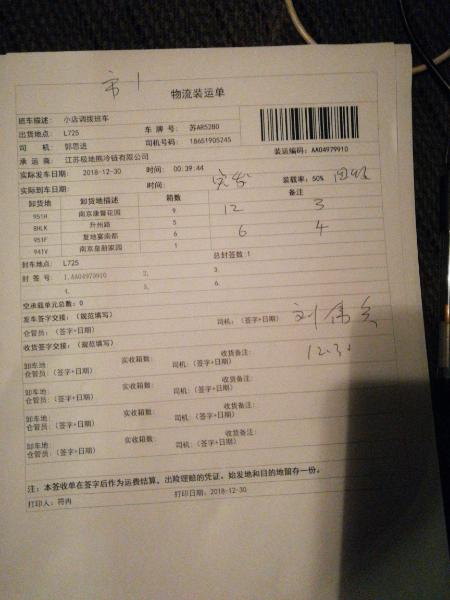 市1
物流装运单
班车描述： 小店调拨班车
出货地点： L725 车 牌 号： 苏AR5280
司 机： 郭思进 司机号码： 18651905245
承 运 商： 江苏极地熊冷链有限公司 装运编码：AA04979910
实际发车日期： 2018-12-30 时间： 00:39:44 装载率：50%
实际到车日期： 时间： 实发 备注
卸货地 卸货地描述 箱数
951H 南京康馨花园 9 12 3
8HLK 升州路 5
951F 复地宴南都 6 6 4
941V 南京皇册家园 1
封车地点： L725 总封签数：1
封 签 号： 1.AA04979910 2. 3.
4. 5. 6.
空承载单元总数：0
发车签字交接：（规范填写）
仓管员：（签字+日期） 司机：（签字+日期）
收货签字交接：（规范填写） 12.31
卸车地： 实收箱数： 收货备注：
仓管员：（签字+日期） 司机：（签字+日期）
卸车地： 实收箱数： 收货备注：
仓管员：（签字+日期） 司机：（签字+日期）
卸车地： 实收箱数： 收货备注：
仓管员：（签字+日期） 司机：（签字+日期）
卸车地： 实收箱数： 收货备注：
仓管员：（签字+日期） 司机：（签字+日期）
注：本签收单在签字后作为运费结算，出险理赔的凭证，始发地和目的地留存一份。
打印人：符冉 打印日期：2018-12-30